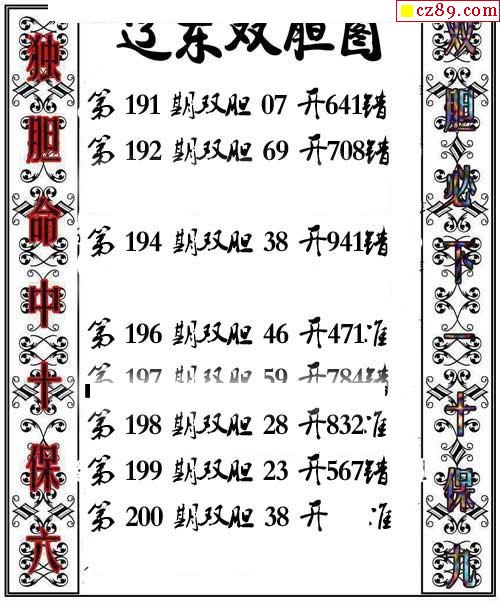 cz89.com
辽东双胆图
独胆命中十保六
第 191 期双胆 07 开641错
第 192 期双胆 69 开708错
第 194 期双胆 38 开941错
第 196 期双胆 46 开471准
第 197 期双胆 59 开784错
第 198 期双胆 28 开832准
第 199 期双胆 23 开567错
第 200 期双胆 38 开 准
双胆必下一十保九